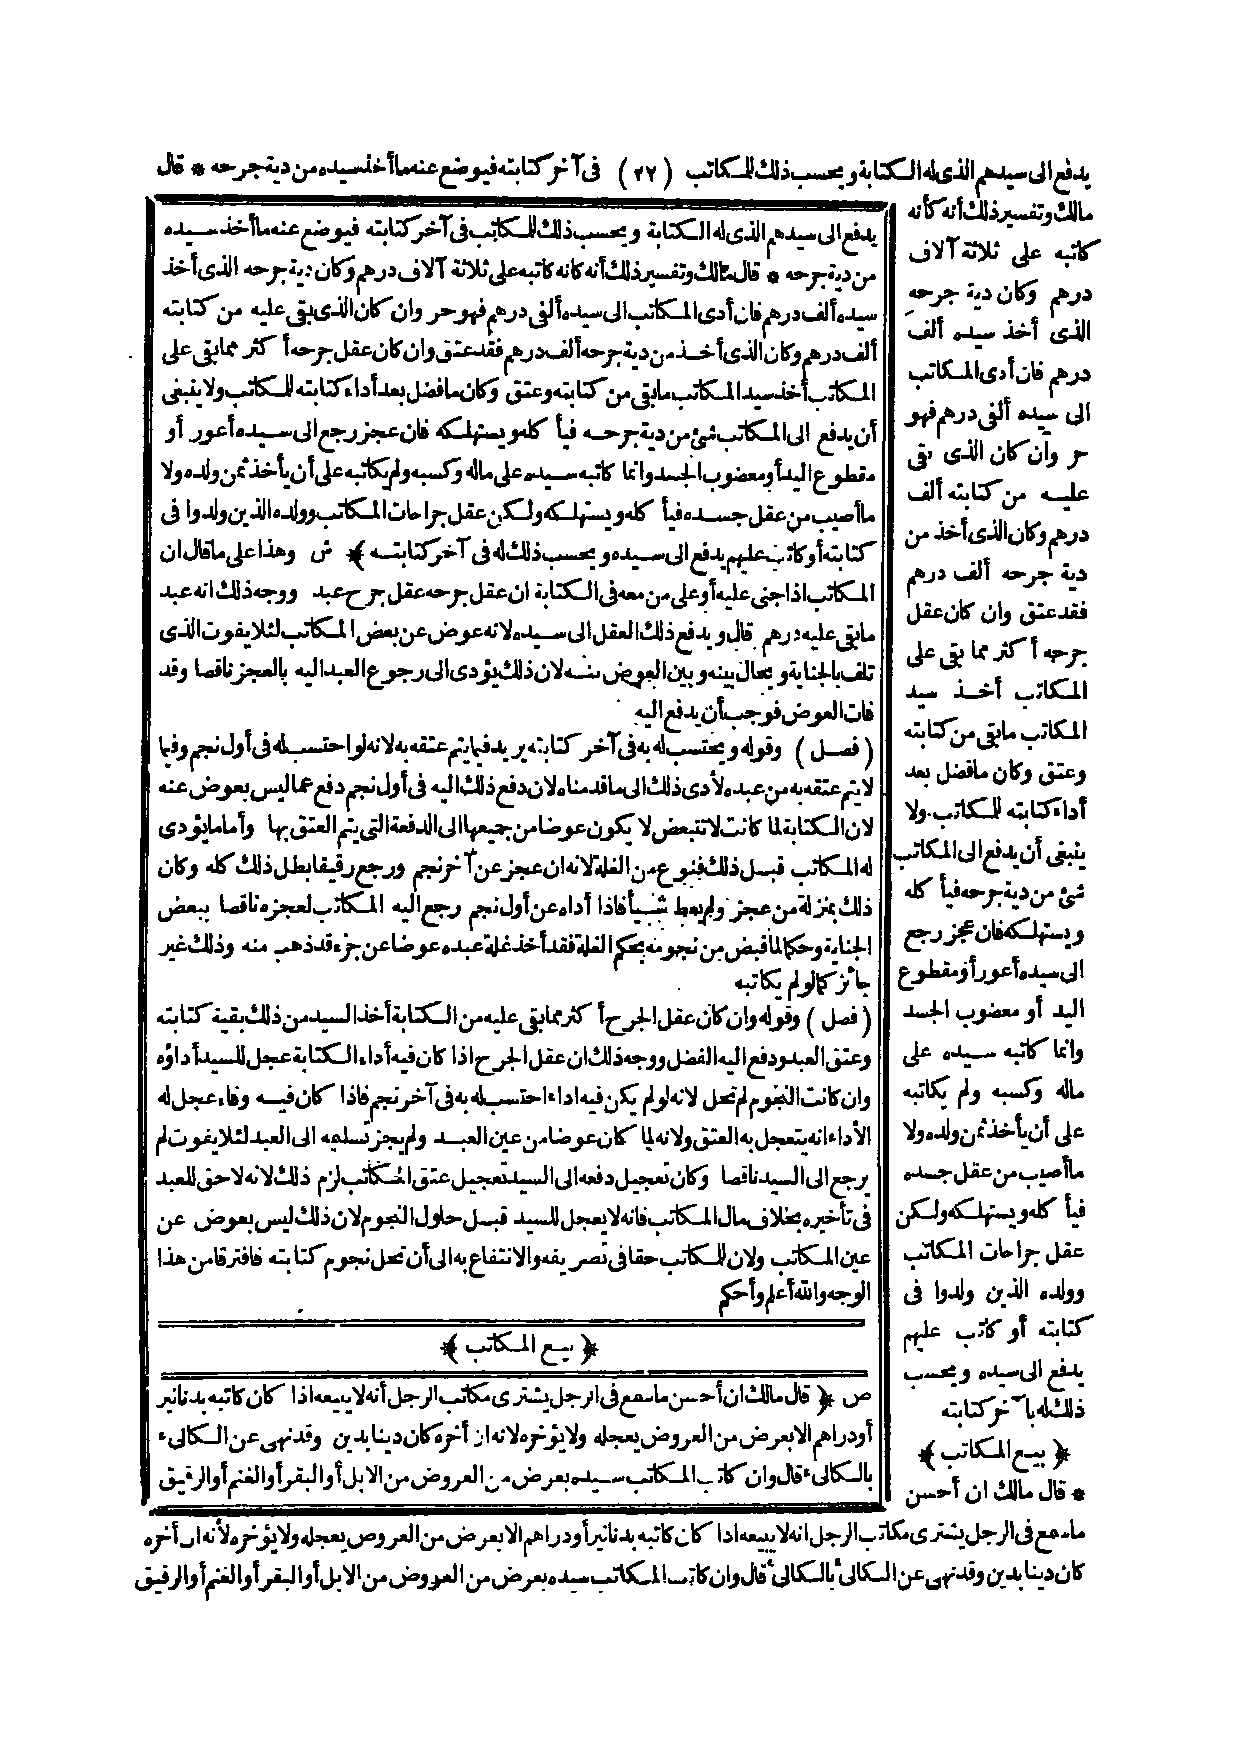 يدفع الى سيدهم الذى له الكتابة ويحسب ذلك للمكاتب (٢٧) فى آخر كتابته فيوضع عنه ما أخذ سيده من دية جرحه * قال
مالك وتفسير ذلك أنه كأنه
كاتبه على ثلاثة آلاف
درهم وكان دية جرحه
الذى أخذ سيده ألف
درهم فان أدى المكاتب
الى سيده ألفى درهم فهو
حر وان كان الذى بقى
عليه من كتابته ألف
درهم وكان الذى أخذ من
دية جرحه ألف درهم
فقد عتق وان كان عقل
جرحه أكثر مما بقى على
المكاتب أخذ سيد
المكاتب ما بقى من كتابته
وعتق وكان ما فضل بعد
أداء كتابته للمكاتب ولا
ينبغى أن يدفع الى المكاتب
شئ من دية جرحه فيأكله
ويستهلكه فان عجز رجع
الى سيده أعور أو مقطوع
اليد أو معضوب الجسد
وانما كاتبه سيده على
ماله وكسبه ولم يكاتبه
على أن يأخذ ثمن ولده ولا
ما أصيب من عقل جسده
فيأكله ويستهلكه ولكن
عقل جراحات المكاتب
وولده الذين ولدوا فى
كتابته أو كاتب عليهم
يدفع الى سيده ويحسب
ذلك له بآخر كتابته
﴿ بيع المكاتب ﴾
* قال مالك ان أحسن
يدفع الى سيدهم الذى له الكتابة ويحسب ذلك للمكاتب فى آخر كتابته فيوضع عنه ما أخذ سيده
من دية جرحه * قال مالك وتفسير ذلك أنه كانه كاتبه على ثلاثة آلاف درهم وكان دية جرحه الذى أخذ
سيده ألف درهم فان أدى المكاتب الى سيده ألفى درهم فهو حر وان كان الذى بقى عليه من كتابته
ألف درهم وكان الذى أخذ من دية جرحه ألف درهم فقد عتق وان كان عقل جرحه أكثر مما بقى على
المكاتب أخذ سيد المكاتب ما بقى من كتابته وعتق وكان ما فضل بعد أداء كتابته للمكاتب ولا ينبغى
أن يدفع الى المكاتب شئ من دية جرحه فيأكله ويستهلكه فان عجز رجع الى سيده أعور أو
مقطوع اليد أو معضوب الجسد وانما كاتبه سيده على ماله وكسبه ولم يكاتبه على أن يأخذ ثمن ولده ولا
ما أصيب من عقل جسده فيأكله ويستهلكه ولكن عقل جراحات المكاتب وولده الذين ولدوا فى
كتابته أو كاتب عليهم يدفع الى سيده ويحسب ذلك له فى آخر كتابته ﴾ ش وهذا على ما قال ان
المكاتب اذا جنى عليه أو على من معه فى الكتابة ان عقل جرحه عقل جرح عبد ووجه ذلك انه عبد
ما بقى عليه درهم قال ويدفع ذلك العقل الى سيده لانه عوض عن بعض المكاتب لئلا يفوت الذى
تلف بالجناية ويحال بينه وبين العوض منه لان ذلك يؤدى الى رجوع العبد اليه بالعجز ناقصا وقد
فات العوض فوجب أن يدفع اليه
(فصل) وقوله ويحتسب له به فى آخر كتابته يريد فيما يتم عتقه به لانه لو احتسب له فى أول نجم وفيما
لا يتم عتقه به من عبده لأدى ذلك الى ما قدمناه لان دفع ذلك اليه فى أول نجم دفع عما ليس بعوض عنه
لان الكتابة لما كانت لا تتبعض لا يكون عوضا من جميعها الى الدفعة التى يتم العتق بها وأما ما يؤدى
له المكاتب قبل ذلك فنوع من الغلة لانه ان عجز عن آخر نجم ورجع رقيقا بطل ذلك كله وكان
ذلك بمنزلة من عجز ولم يعط شيأ فاذا أداه عن أول نجم رجع اليه المكاتب لعجزه ناقصا ببعض
الجناية وحكم لما قبض من نجومه بحكم الغلة فقد أخذ غلة عبده عوضا عن جزء قد ذهب منه وذلك غير
جائز كما لو لم يكاتبه
(فصل) وقوله وان كان عقل الجرح أكثر مما بقى عليه من الكتابة أخذ السيد من ذلك بقية كتابته
وعتق العبد ودفع اليه الفضل ووجه ذلك ان عقل الجرح اذا كان فيه أداء الكتابة عجل للسيد أداؤه
وان كانت النجوم لم تحل لانه لو لم يكن فيه اداء احتسب له به فى آخر نجم فاذا كان فيه وفاء عجل له
الأداء انه يتعجل به العتق ولانه لما كان عوضا من عين العبد ولم يجز تسليمه الى العبد لئلا يفوت لم
يرجع الى السيد ناقصا وكان تعجيل دفعه الى السيد تعجيل عتق المكاتب لزم ذلك لانه لا حق للعبد
فى تأخيره بخلاف مال المكاتب فانه لا يعجل للسيد قبل حلول النجوم لان ذلك ليس بعوض عن
عين المكاتب ولان للمكاتب حقا فى تصريفه والانتفاع به الى أن تحل نجوم كتابته فافترقا من هذا
الوجه والله أعلم وأحكم
﴿ بيع المكاتب ﴾
ص ﴿ قال مالك ان أحسن ما سمع فى الرجل يشترى مكاتب الرجل أنه لا يبيعه اذا كان كاتبه بدنانير
أو دراهم الا بعرض من العروض يعجله ولا يؤخره لانه ان أخره كان دينا بدين وقد نهى عن الكالىء
بالكالىء قال وان كاتب المكاتب سيده بعرض من العروض من الابل أو البقر أو الغنم أو الرقيق
ما سمع فى الرجل يشترى مكاتب الرجل انه لا يبيعه اذا كان كاتبه بدنانير أو دراهم الا بعرض من العروض يعجله ولا يؤخره لأنه ان أخره
كان دينا بدين وقد نهى عن الكالئ بالكالئ قال وان كاتب المكاتب سيده بعرض من العروض من الابل أو البقر أو الغنم أو الرقيق